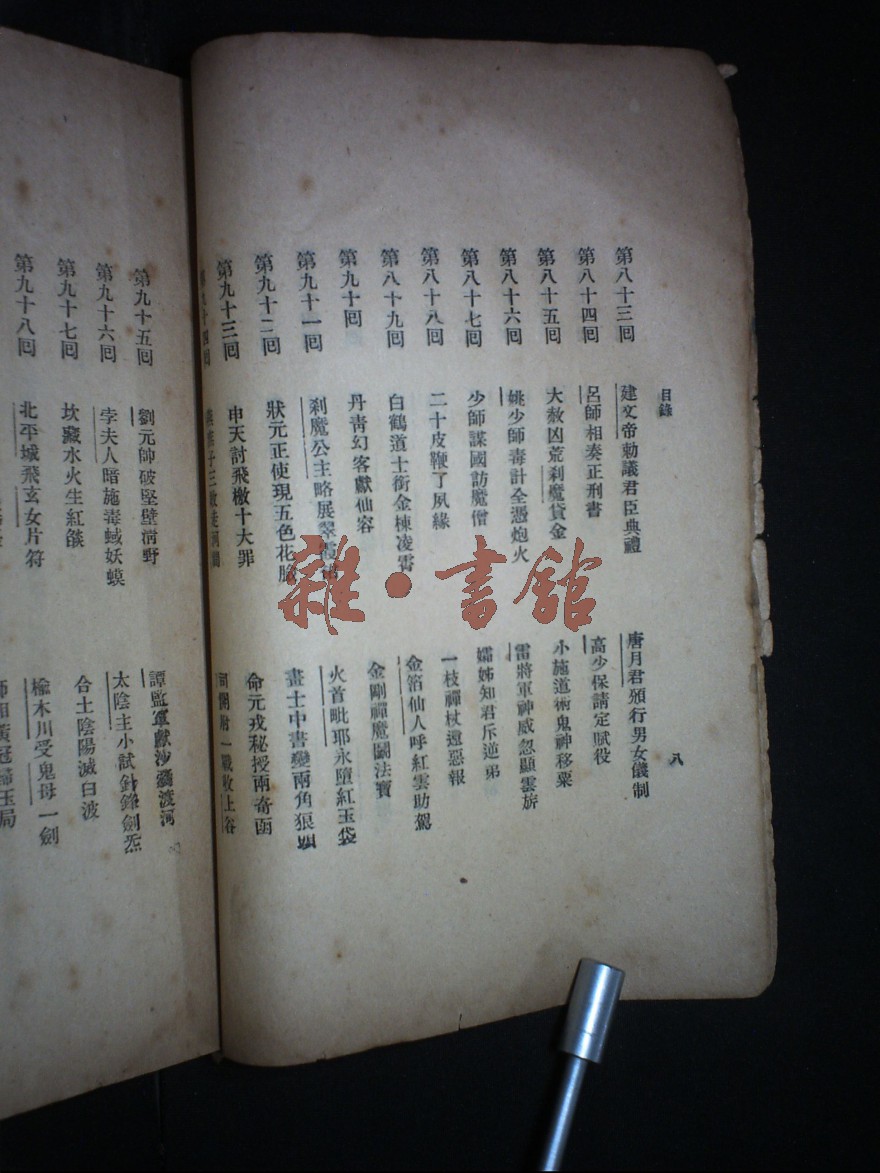 目錄
八
第八十三囘 建文帝勅議君臣典禮 唐月君頒行男女儀制
第八十四囘 呂師相奏正刑書 高少保請定賦役
第八十五囘 大救凶荒刹魔貸金 小施道術鬼神移粟
第八十六囘 姚少師毒計全憑炮火 雷將軍神威忽顯雲旂
第八十七囘 少師謀國訪魔僧 孀姊知君斥逆弟
第八十八囘 二十皮鞭了夙緣 一枝禪杖還惡報
第八十九囘 白鶴道士銜金棟凌霄 金箔仙人呼紅雲助駕
第九十囘 丹靑幻客獻仙容 金剛禪魔鬭法寶
第九十一囘 刹魔公主略展翠霞裙 火首毗耶永墮紅玉袋
第九十二囘 狀元正使現五色花臉 畫士中書變兩角狼頭
第九十三囘 申天討飛檄十大罪 命元戎秘授兩奇函
一戰收上谷
第九十五囘 劉元帥破堅壁淸野 譚監軍獻沙囊渡河
第九十六囘 孛夫人暗施毒蜮妖蟆 太陰主小試針鋒劍炁
第九十七囘 坎藏水火生紅燄 合土陰陽滅白波
第九十八囘 北平城飛玄女片符 楡木川受鬼母一劍
玉局
雜·書館